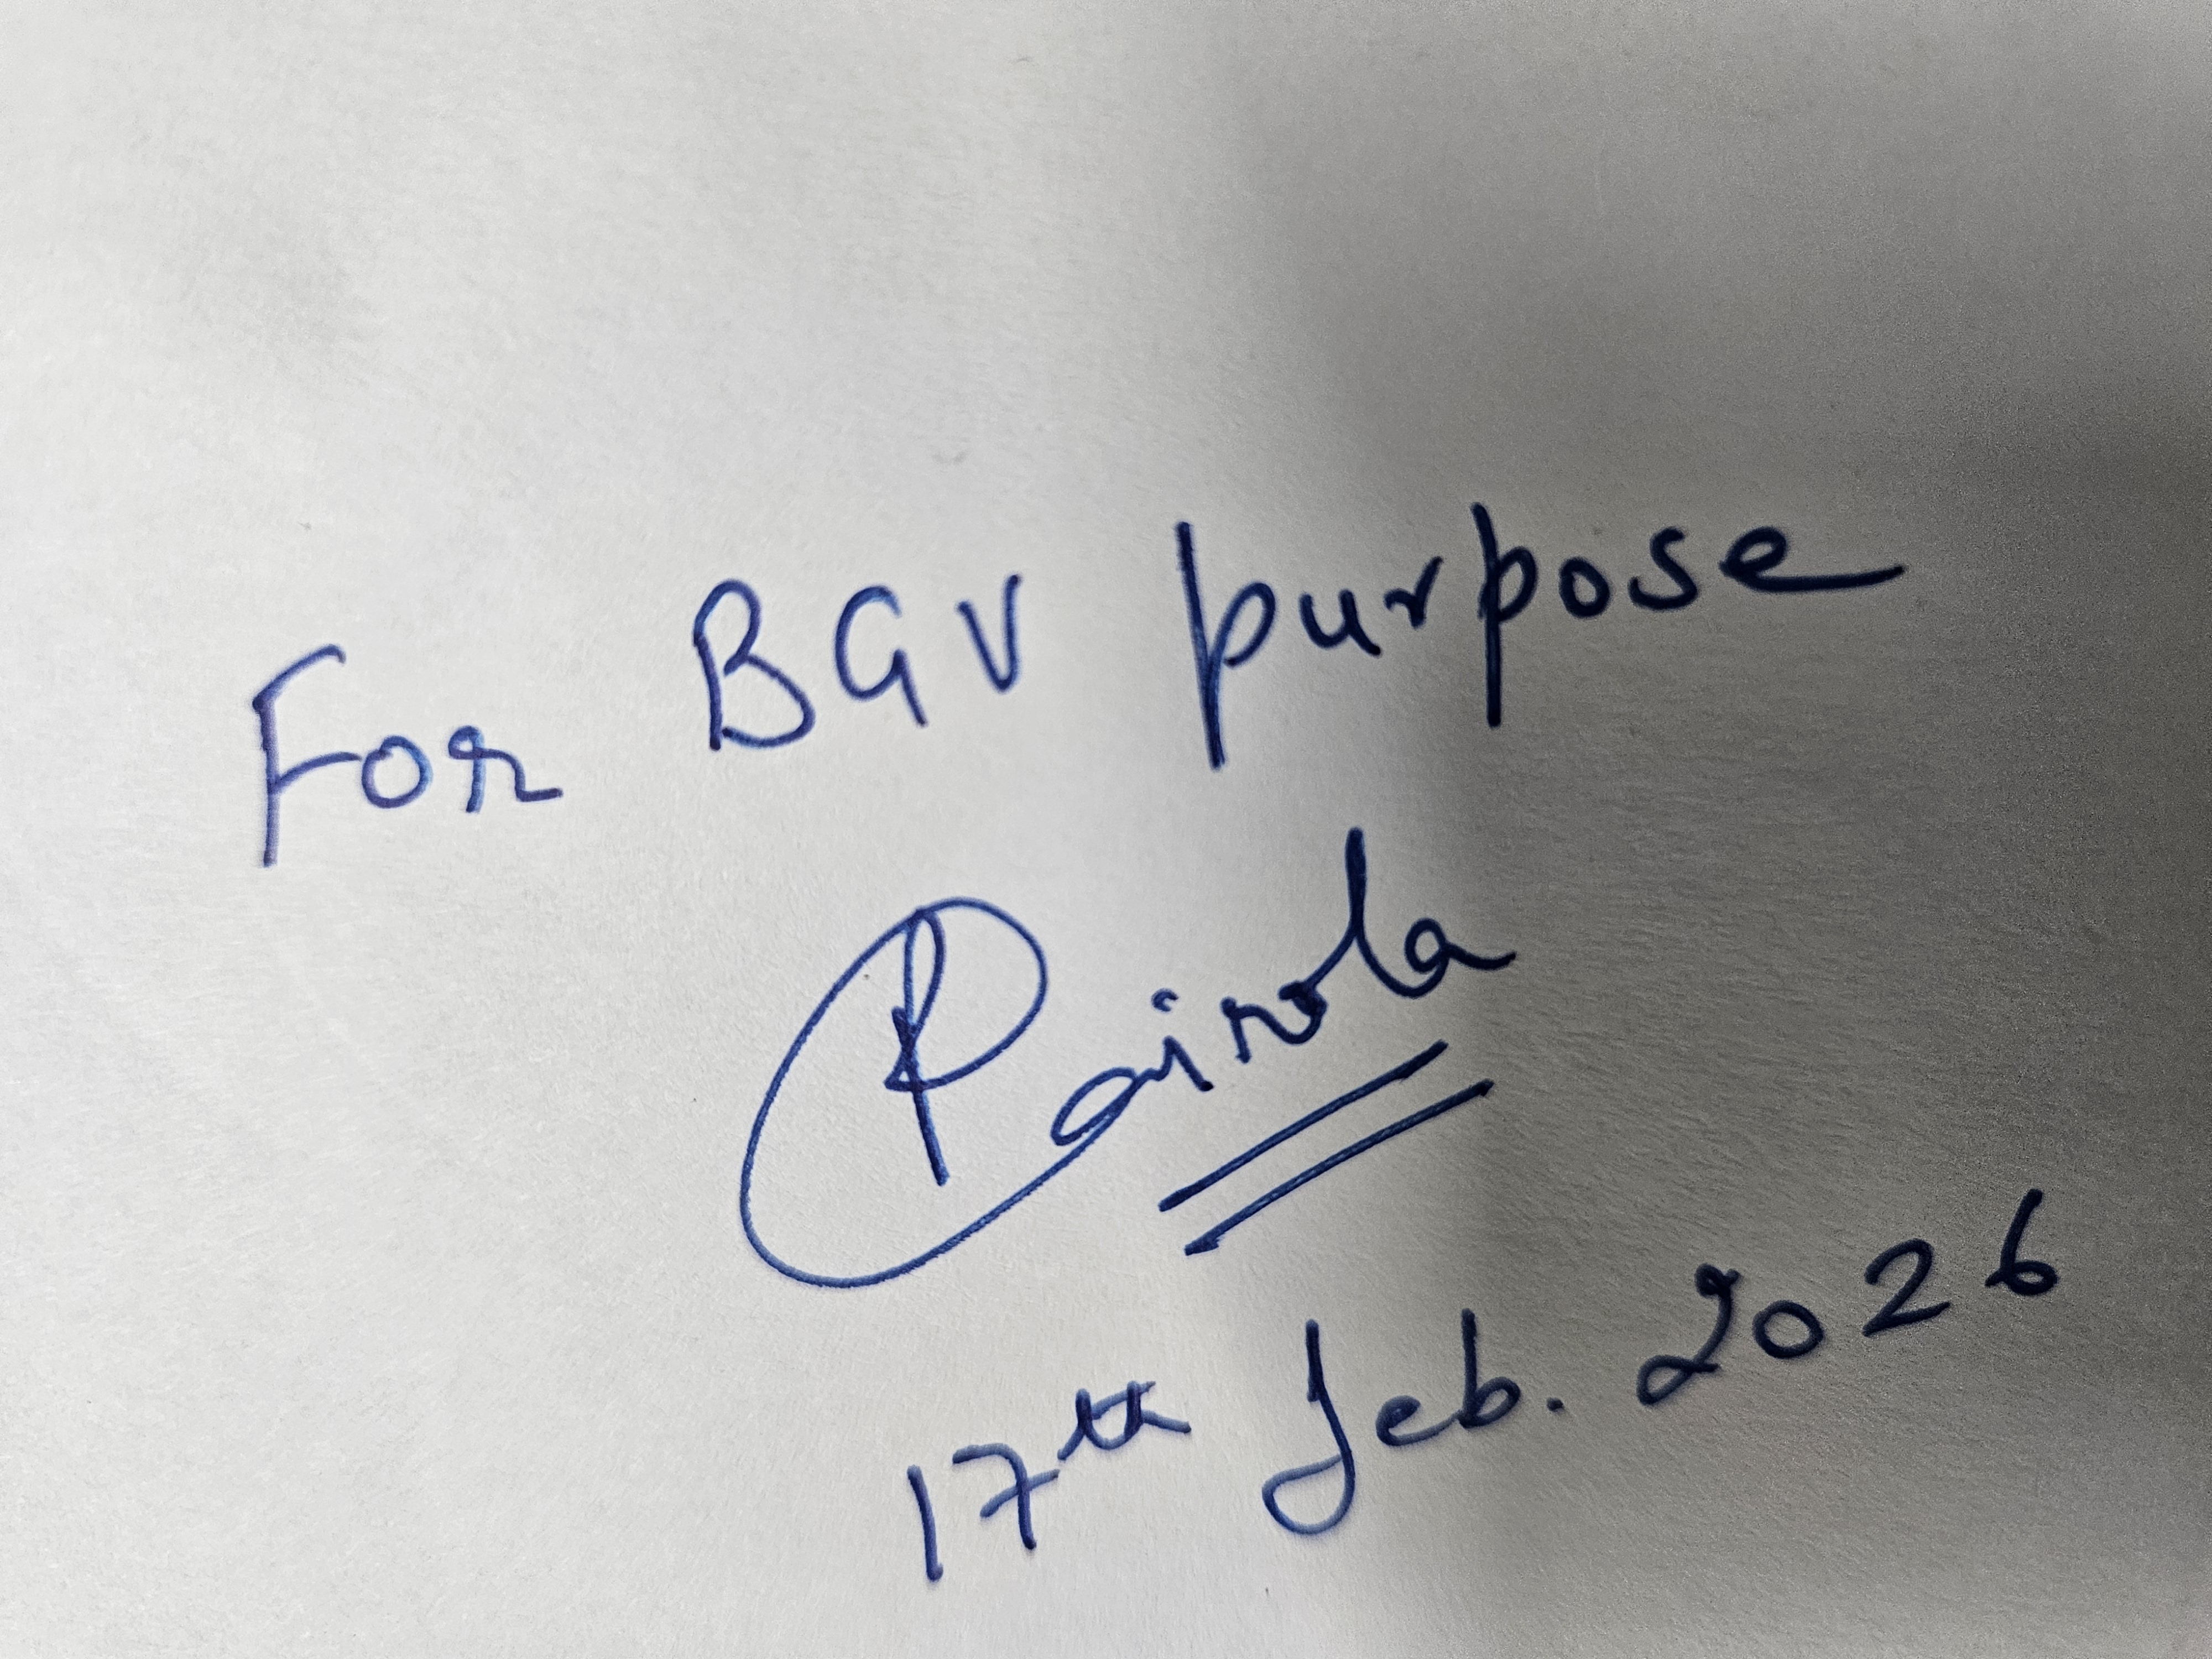 For BGV purpose
Pairola
17th Feb. 2026